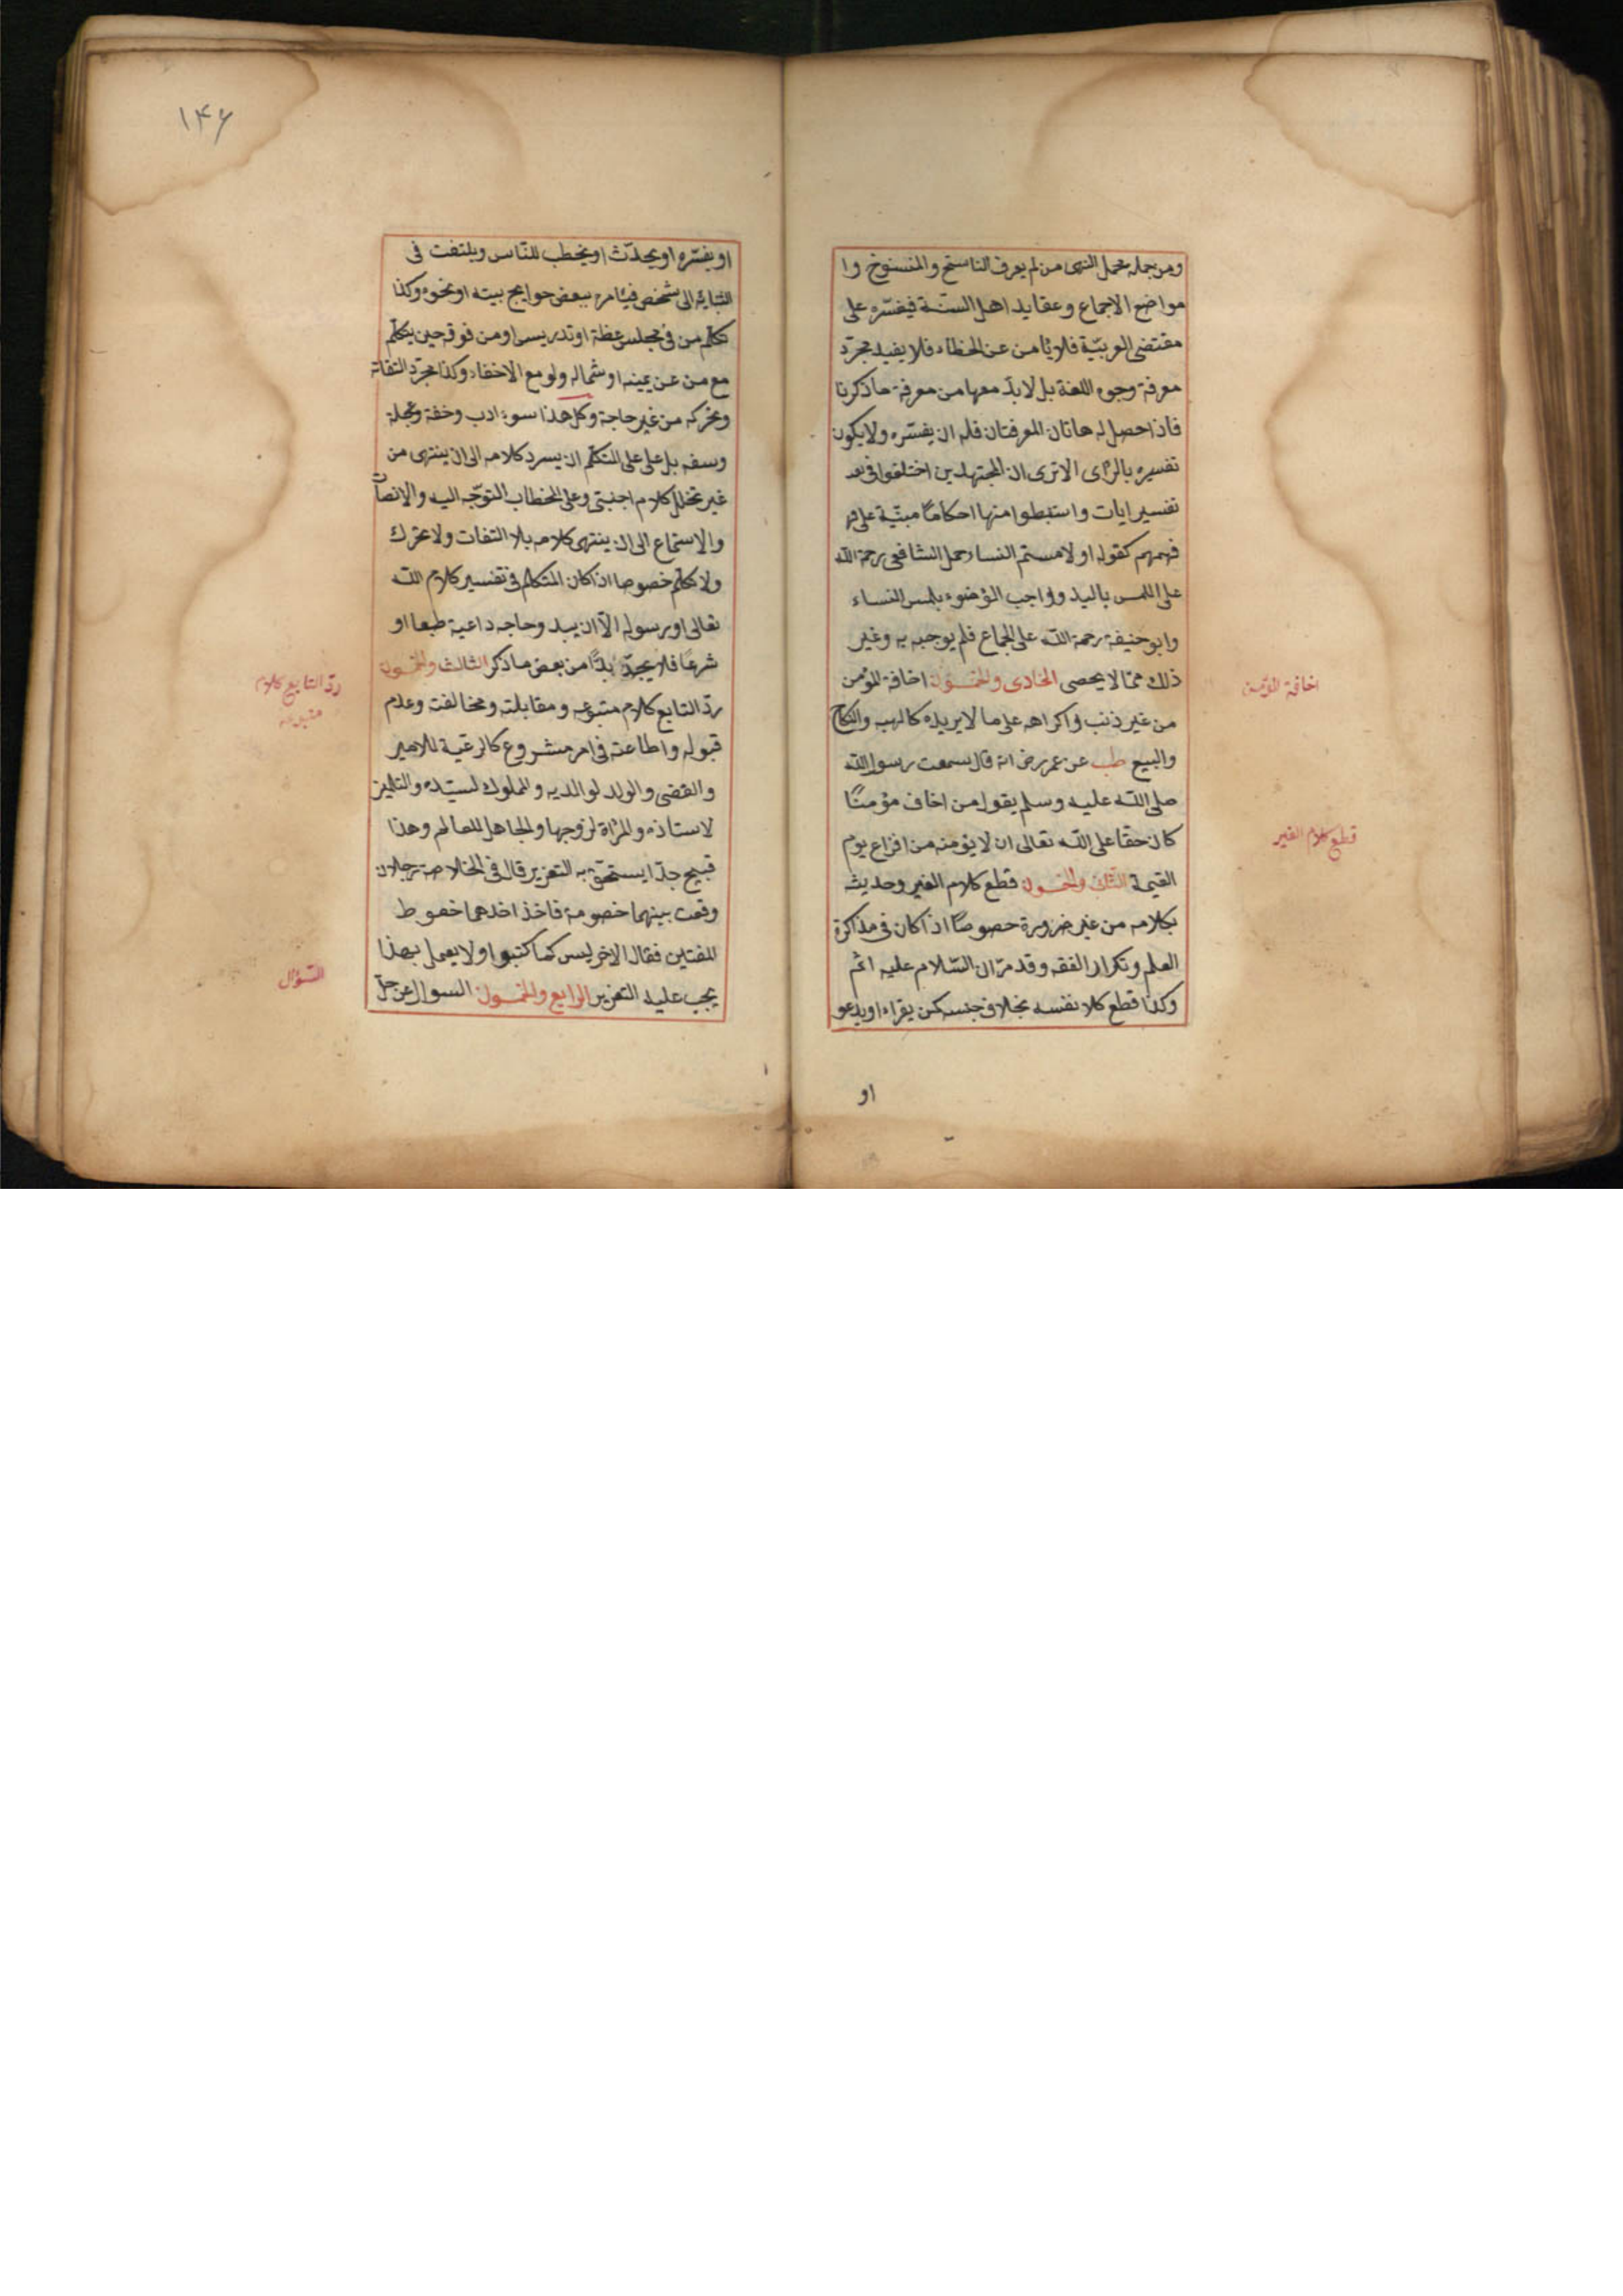 ومن جمله محمل النهى من لم يعرف الناسخ والمنسوخ وا
مواضع الاجماع وعقايد اهل السنة فيفسّره على
مقتضى العربيّة فلا ئامن عن الخطاء فلا يفيد مجرّد
معرفة وجوه اللغة بل لابدّ معها من معرفة ما ذكرنا
فاذا حصل له هاتان المعرفتان فله ان يفسّره ولا يكون
تفسيره بالرٔاى الا ترى ان المجتهدين اختلفوا فى
تفسير ايات واستبطوا منها احكامًا مبنيّة على
فهمهم كقوله او لامستم النساء حمل الشافعى رحمة الله
على اللمس باليد واوجب الوٴضوء بلمس النساء
وابو حنيفة رحمة الله على الجماع فلم يوجبه به وغير
ذلك ممّا لا يحصى الحادى والخمسون اخافة المؤمن
من غير ذنب واكراهه على ما لا يريده كالهبه والنكاح
والبيع طب عن عمر رض انه قال سمعت رسول الله
صلى الله عليه وسلم يقول من اخاف مؤمنًا
كان حقا على الله تعالى ان لا يؤمنه من افزاع يوم
القيمة الثانى والخمسون قطع كلام الغير وحديثه
بكلامه من غير ضرورة خصوصًا اذا كان فى مذاكرة
العلم وتكرار الفقه وقد مرّ ان السّلام عليه اثم
وكذا قطع كلا نفسه بخلاف جنسه كمن يقراء او يدعو
او
اخافة المؤمن
قطع كلام الغير
١۴۶
او يفسّره او يحدّث او يخطب للنّاس ويلتفت فى
اثنائه الى شخص فئامره ببعض حوايج بيته او نحوه وكذا
تكلّم من فى مجلس عظة او تدريس او من فوقه حين يتكلّم
مع من عن يمينه او شماله ولو مع الاخفاء وكذا مجرّد التفاته
وتحركه من غير حاجة وكل هذا سوء ادب وخفة وعجلة
وسفه بل على على المتكلّم ان يسرد كلامه الى ان ينتهى من
غير تخلل كلام اجنبىّ وعلى المخطاب التوجّه اليه والانصات
والاستماع الى ان ينتهى كلامه بلا التفات ولا تحرك
ولا تكلّم خصوصا اذا كان المتكلم فى تفسير كلام الله
تعالى او رسوله الّا ان يبدو حاجه داعية طبعا او
شرعًا فلا يجدّ بدًّا من بعض ما ذكر الثالث والخمسون
ردّ التابع كلام متبوعه ومقابلته ومخالفته وعدم
قبوله واطاعته فى امر مشروع كالرعية للامير
والقضى والولد لوالديه والمملوك لسيّده والتلميذ
لاستاذه والمرٔاة لزوجها والجاهل للعالم وهذا
قبيح جدّا يستحقّ به التعزير قال فى الخلاصة رجلان
وقعت بينهما خصومة فاخذ احدهما خصوط
المفتين فقال الاخر ليس كما كتبوا او لا يعمل بهذا
يجب عليه التعزير الرابع والخمسون السوال عن حلّ
ردّ التابع كلام
متبوعه
السّؤال